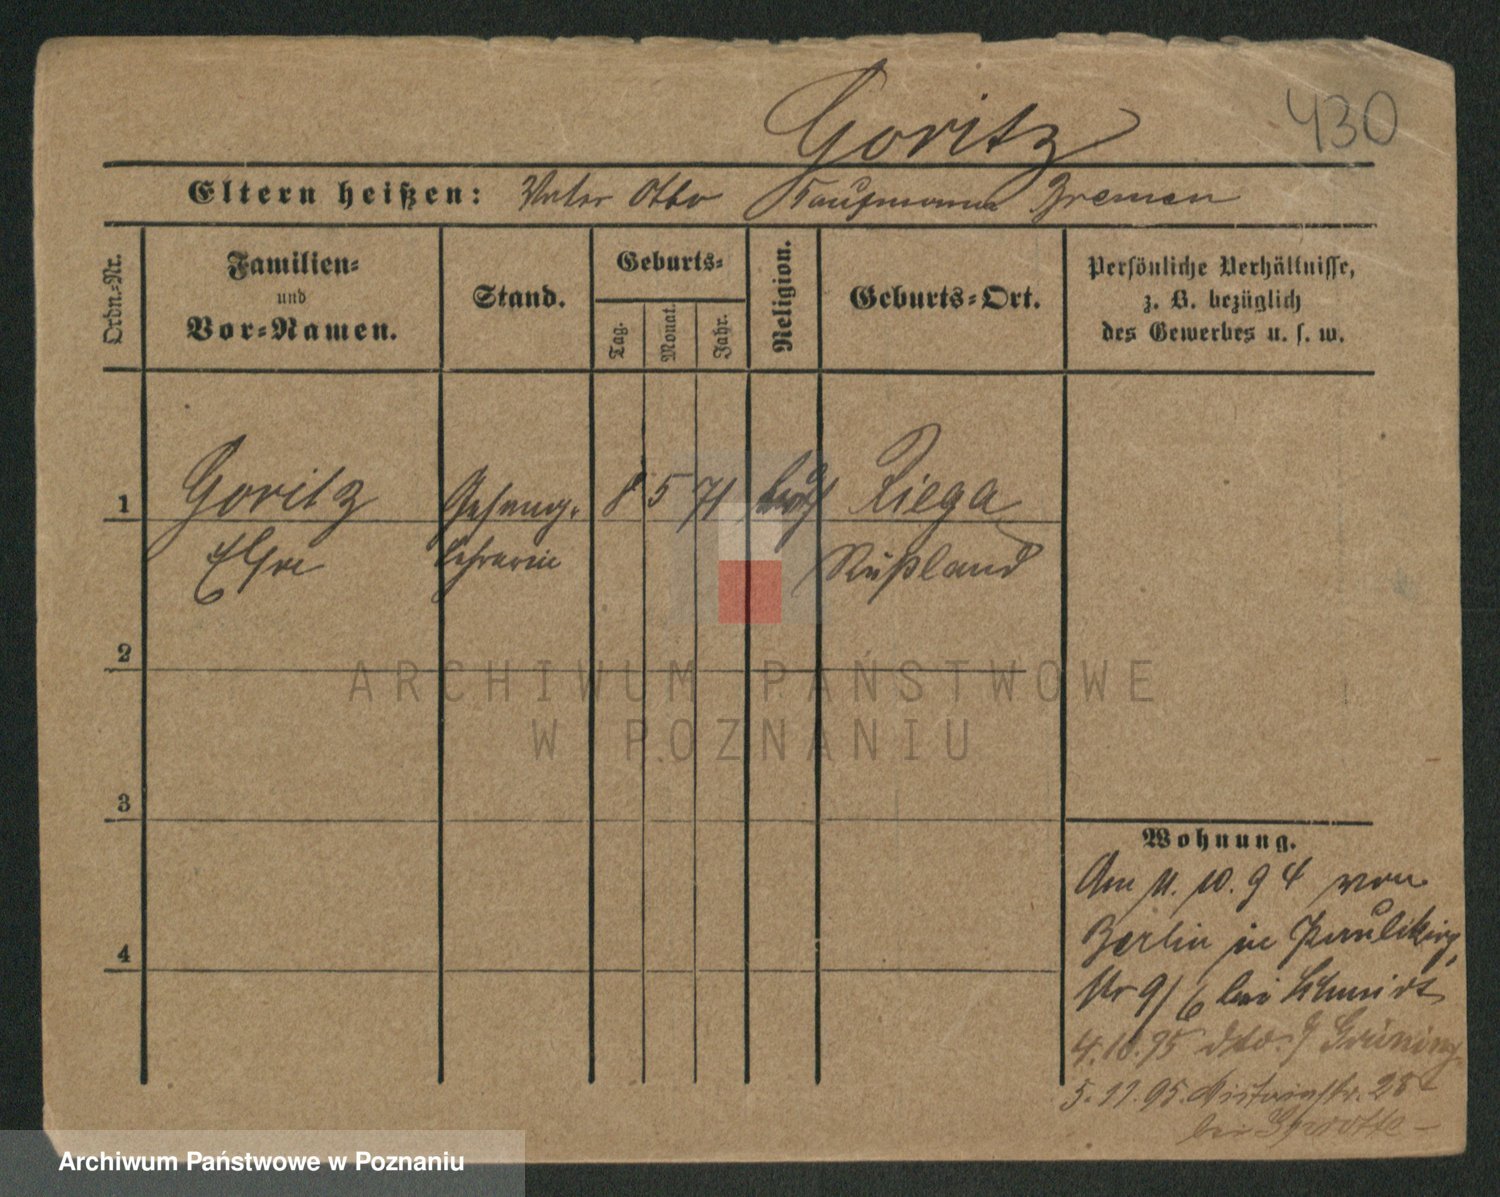 430
Goritz
Eltern heißen: Vater Otto Kaufmann Bremen
Ordn.-Nr.
Familien-
und
Vor-Namen.
Stand.
Geburts-
Tag.
Monat.
Jahr.
Religion.
Geburts-Ort.
Persönliche Verhältnisse,
z. B. bezüglich
des Gewerbes u. s. w.
1
Goritz
Gesang-
8 5 71
Riega
Else
lehrerin
Rußland
2
3
4
ARCHIWUM PAŃSTWOWE
W POZNANIU
Wohnung.
Am 11. 10. 94 von
Berlin in Paulikirch
Nr 9/6 bei Schmidt
4. 10. 95 dto.
5. 11. 95. 25
bei
Archiwum Państwowe w Poznaniu